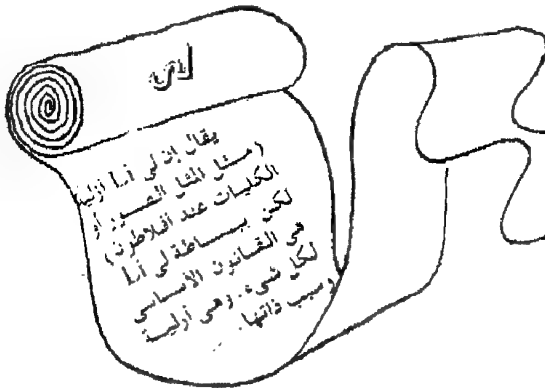 لى
يقال إن لى أنها أزلية
(مثل المثل الصور أو
الكليات عند أفلاطون)
لكن ببساطة لى أنها
هى القانون الأساسى
لكل شىء. وهى أزلية
وسبب ذاتها.